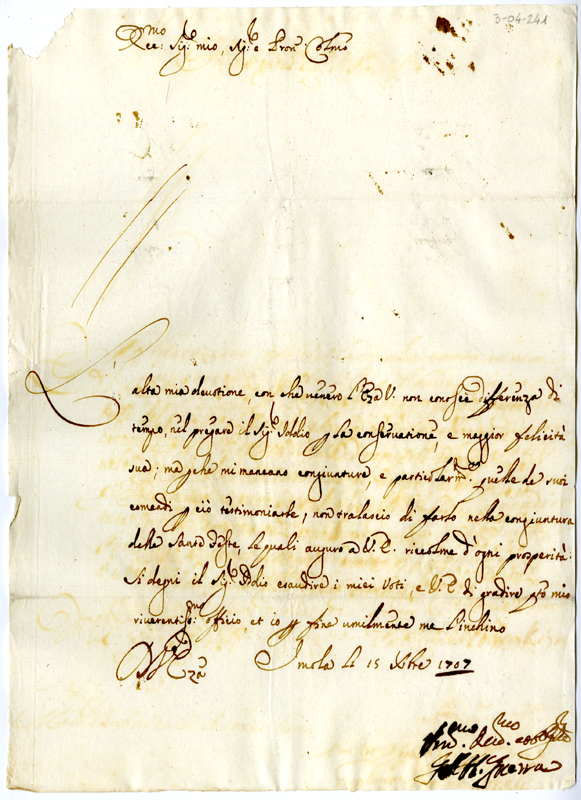 3-04-241
Ecc.mo Sig.r mio, Sig.r e Pron Colmo
L'alta mia devotione, con che venero l'Ecza V. non conosce differenza di
tempo, nel pregare il Sig.r Iddio p la conservatione, e maggior felicità
sua; ma pche mi mancano congiunture, e particolarm.te quelle de suoi
comandi p ciò testimoniarle, non tralascio di farlo nella congiuntura
delle Sante Feste, le quali auguro a V.E. ricolme d'ogni prosperità.
Si degni il Sig.r Iddio esaudire i miei voti, e V.E. di gradire qto mio
riverentis.mo officio, et io p fine umilmente me l'inchino
D V Ecza
Imola li 15 Xbre 1707
Um.mo Dev.mo Obblig
G. Guerra